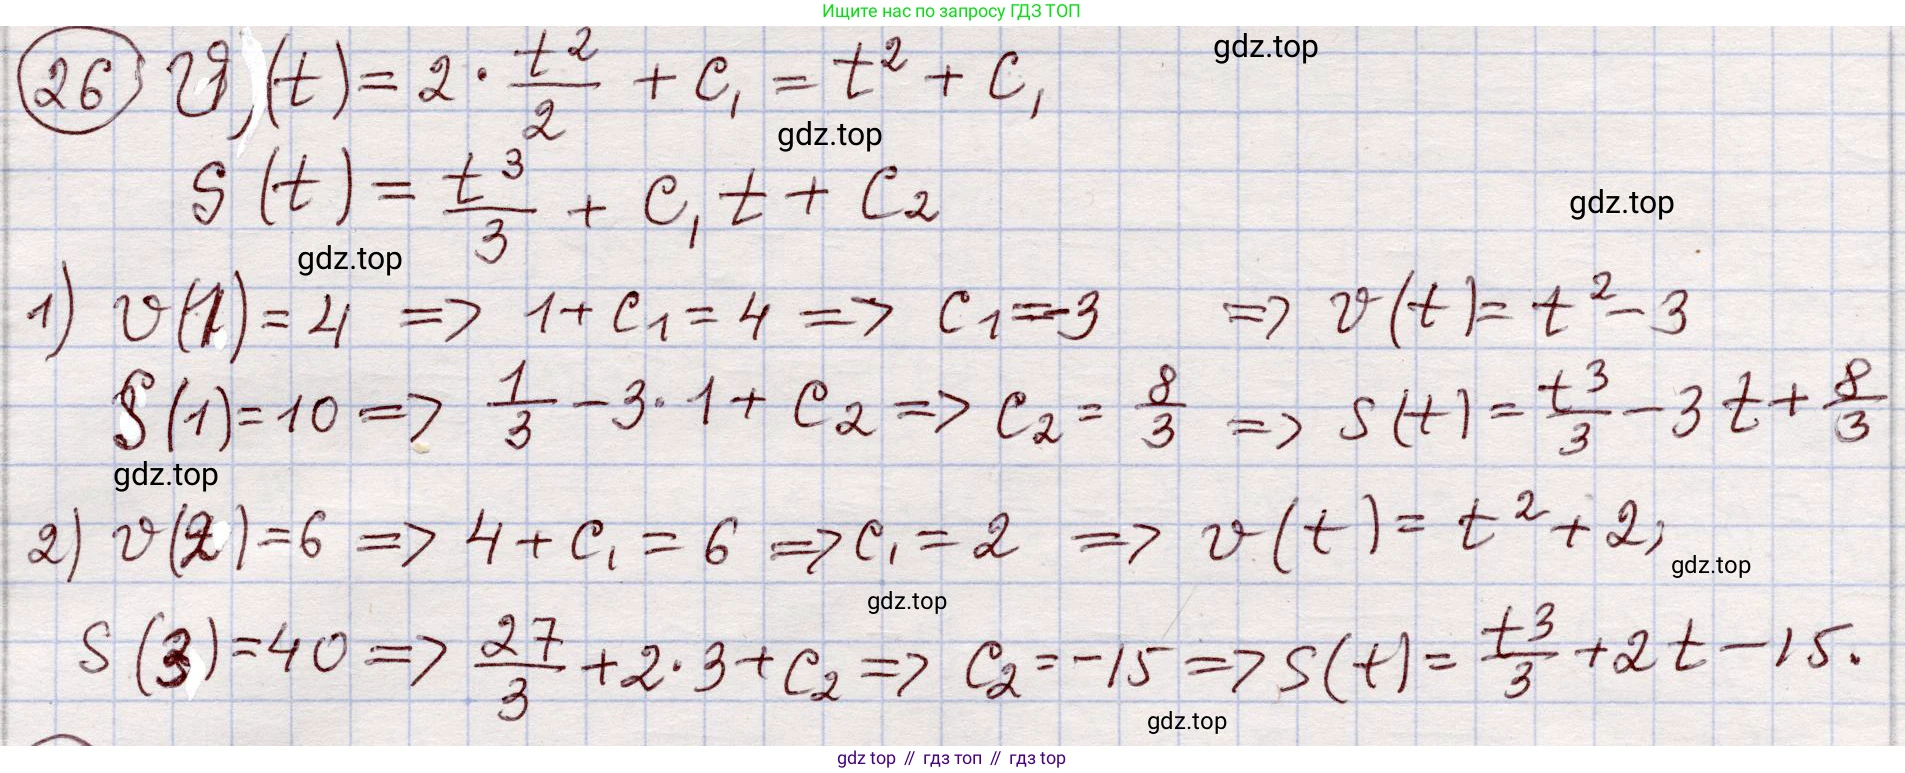 Ищите нас по запросу ГДЗ ТОП
26 v(t) = 2 · t²/2 + C₁ = t² + C₁
gdz.top
gdz.top
S(t) = t³/3 + C₁t + C₂
gdz.top
gdz.top
1) v(1) = 4 => 1 + C₁ = 4 => C₁ = -3 => v(t) = t² - 3
S(1) = 10 => 1/3 - 3 · 1 + C₂ => C₂ = 8/3 => S(t) = t³/3 - 3t + 8/3
gdz.top
2) v(2) = 6 => 4 + C₁ = 6 => C₁ = 2 => v(t) = t² + 2;
gdz.top
gdz.top
S(3) = 40 => 27/3 + 2 · 3 + C₂ => C₂ = -15 => S(t) = t³/3 + 2t - 15.
gdz.top
gdz top // гдз топ // gdz top